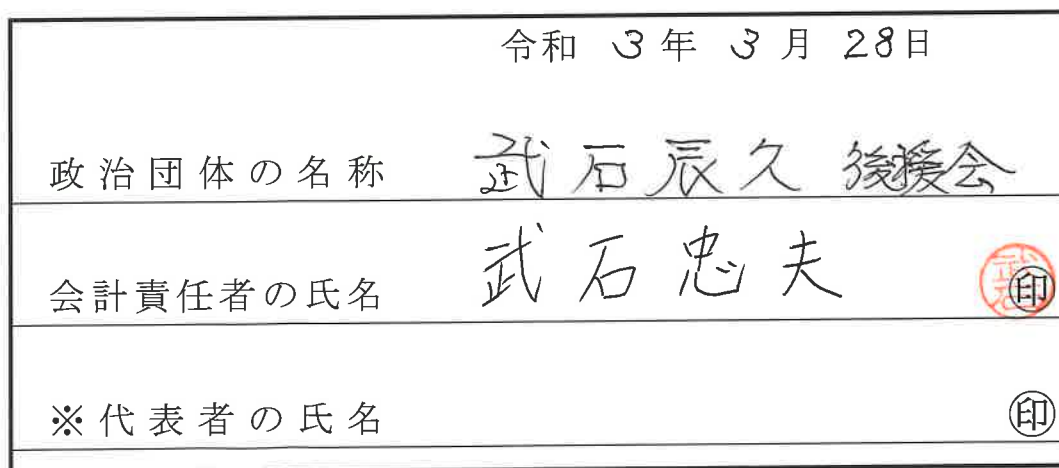 令和 3年 3月 28日
政治団体の名称 武石辰久 後援会
会計責任者の氏名 武石忠夫 武石 印
※代表者の氏名 印